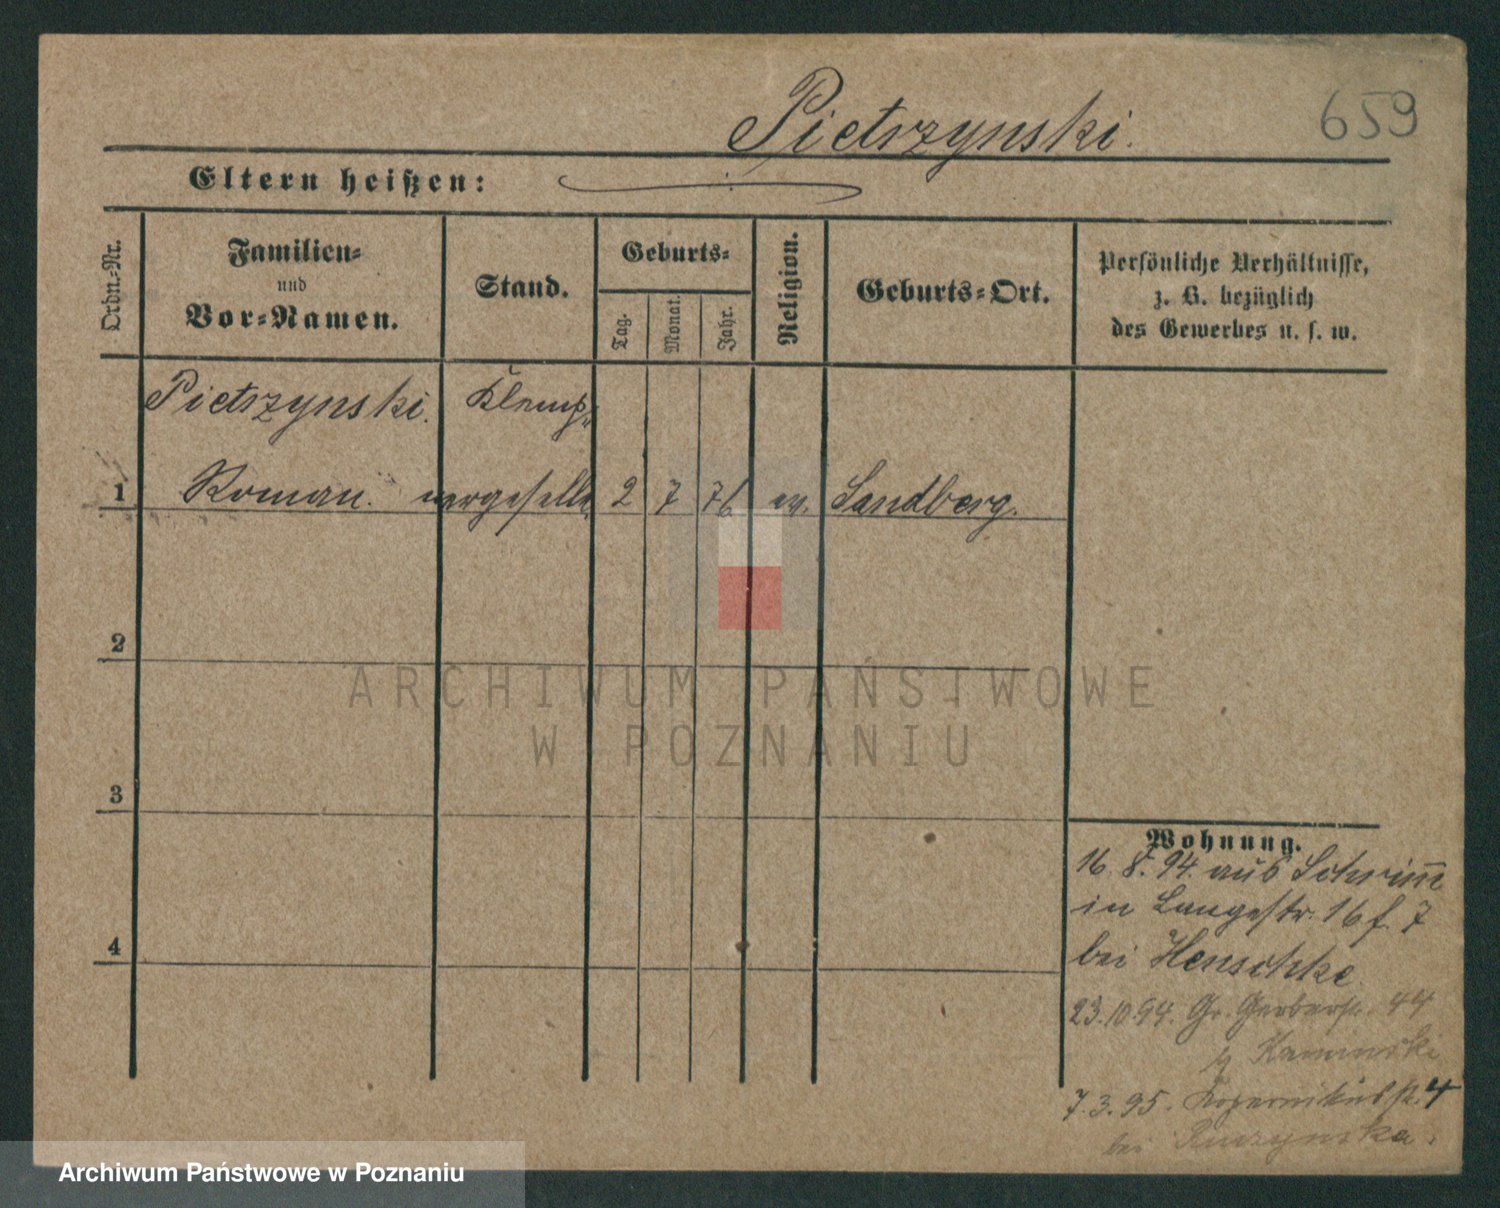 Pietrzynski.
659
Eltern heißen:
Ordn.-Nr.
Familien-
und
Vor-Namen.
Stand.
Geburts-
Tag.
Monat.
Jahr.
Religion.
Geburts-Ort.
Persönliche Verhältnisse,
z. B. bezüglich
des Gewerbes u. s. w.
Pietrzynski. Klemp-
1 Roman. nergeselle 2 7 76 ev. Sandberg.
2
3
4
Wohnung.
16. 8. 94. aus Schrimm
in Langestr. 16 f. 7
bei Henschke
23.10.94. Gr. Gerberstr. 44
Kaminski
7.3.95. Kopernikusstr. 4
bei Ruczynska.
ARCHIWUM PAŃSTWOWE
W POZNANIU
Archiwum Państwowe w Poznaniu